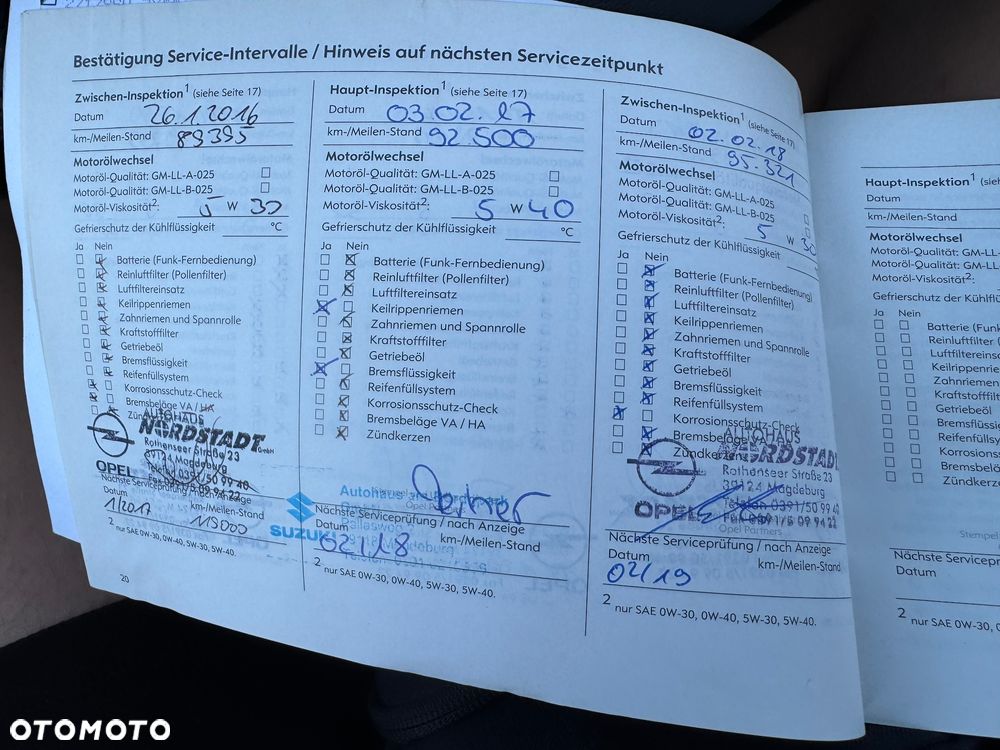 Bestätigung Service-Intervalle / Hinweis auf nächsten Servicezeitpunkt
Zwischen-Inspektion¹ (siehe Seite 17)
Datum 26.1.2016
km-/Meilen-Stand 89395
Motorölwechsel
Motoröl-Qualität: GM-LL-A-025
Motoröl-Qualität: GM-LL-B-025
Motoröl-Viskosität²: 5 W 30
Gefrierschutz der Kühlflüssigkeit °C
Ja Nein
Batterie (Funk-Fernbedienung)
Reinluftfilter (Pollenfilter)
Luftfiltereinsatz
Keilrippenriemen
Zahnriemen und Spannrolle
Kraftstofffilter
Getriebeöl
Bremsflüssigkeit
Reifenfüllsystem
Korrosionsschutz-Check
Bremsbeläge VA / HA
AUTOHAUS
NORDSTADT GmbH
Rothenseer Straße 23
39124 Magdeburg
Telefon 0391/50 99 40
Fax 0391/5 09 94 22
OPEL
Nächste Serviceprüfung / nach Anzeige
Datum km-/Meilen-Stand
1/2017 115000
² nur SAE 0W-30, 0W-40, 5W-30, 5W-40.
20
Haupt-Inspektion¹ (siehe Seite 17)
Datum 03.02.17
km-/Meilen-Stand 92.500
Motorölwechsel
Motoröl-Qualität: GM-LL-A-025
Motoröl-Qualität: GM-LL-B-025
Motoröl-Viskosität²: 5 W 40
Gefrierschutz der Kühlflüssigkeit °C
Ja Nein
Batterie (Funk-Fernbedienung)
Reinluftfilter (Pollenfilter)
Luftfiltereinsatz
Keilrippenriemen
Zahnriemen und Spannrolle
Kraftstofffilter
Getriebeöl
Bremsflüssigkeit
Reifenfüllsystem
Korrosionsschutz-Check
Bremsbeläge VA / HA
Zündkerzen
Autohaus
SUZUKI
Nächste Serviceprüfung / nach Anzeige
Datum km-/Meilen-Stand
02/18
² nur SAE 0W-30, 0W-40, 5W-30, 5W-40.
Zwischen-Inspektion¹ (siehe Seite 17)
Datum 02.02.18
km-/Meilen-Stand 95.321
Motorölwechsel
Motoröl-Qualität: GM-LL-A-025
Motoröl-Qualität: GM-LL-B-025
Motoröl-Viskosität²: 5 W 30
Gefrierschutz der Kühlflüssigkeit
Ja Nein
Batterie (Funk-Fernbedienung)
Reinluftfilter (Pollenfilter)
Luftfiltereinsatz
Keilrippenriemen
Zahnriemen und Spannrolle
Kraftstofffilter
Getriebeöl
Bremsflüssigkeit
Reifenfüllsystem
Korrosionsschutz-Check
Bremsbeläge VA
Zündkerzen
AUTOHAUS
NORDSTADT
Rothenseer Straße 23
39124 Magdeburg
Telefon 0391/50 99 40
Fax 0391/5 09 94 22
OPEL
Opel Partners
Nächste Serviceprüfung / nach Anzeige
Datum km-/Meilen-Stand
02/19
² nur SAE 0W-30, 0W-40, 5W-30, 5W-40.
Haupt-Inspektion¹ (siehe
Datum
km-/Meilen-Stand
Motorölwechsel
Motoröl-Qualität: GM-LL
Motoröl-Qualität: GM-LL
Motoröl-Viskosität²:
Gefrierschutz der Kühlflüssi
Ja Nein
Batterie (Fun
Reinluftfilter
Luftfiltereins
Keilrippenri
Zahnriemen
Kraftstofffilt
Getriebeöl
Bremsflüssi
Reifenfülls
Korrosions
Bremsbelä
Zündkerze
Stempel
Nächste Servicepr
Datum
² nur SAE 0W-30, 0
OTOMOTO